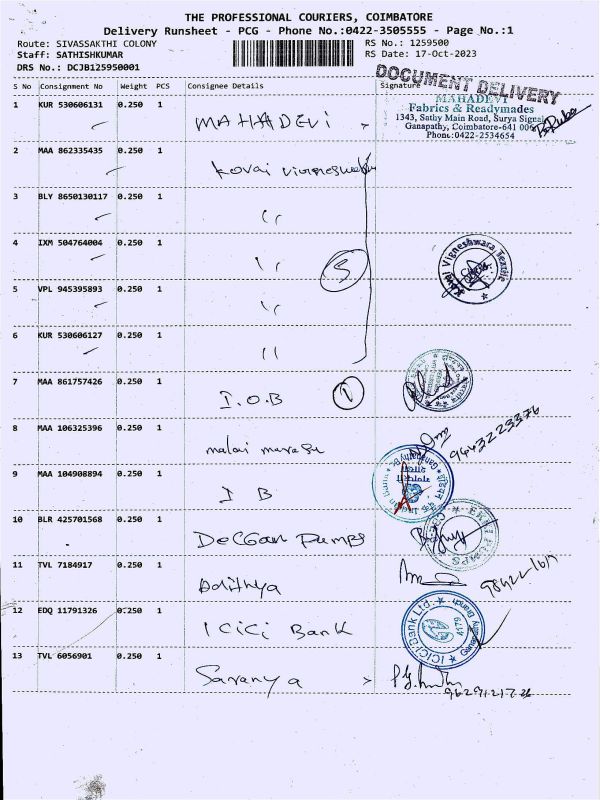 THE PROFESSIONAL COURIERS, COIMBATORE
Delivery Runsheet - PCG - Phone No.:0422-3505555 - Page No.:1
Route: SIVASSAKTHI COLONY RS No.: 1259500
Staff: SATHISHKUMAR RS Date: 17-Oct-2023
DRS No.: DCJB125950001
DOCUMENT DELIVERY
S No Consignment No Weight PCS Consignee Details Signature
MAHADEVI
Fabrics & Readymades
1343, Sathy Main Road, Surya Signal
Ganapathy, Coimbatore-641 006
Phone:0422-2534654
1 KUR 530606131 0.250 1 MAHADEVI
2 MAA 862335435 0.250 1 Kovai
3 BLY 8650130117 0.250 1 ''
4 IXM 504764004 0.250 1 '' 5
Kovai Vigneshwara Textile
5 VPL 945395893 0.250 1 ''
6 KUR 530606127 0.250 1 ''
7 MAA 861757426 0.250 1 I.O.B 1
8 MAA 106325396 0.250 1 malai murasu
9 MAA 104908894 0.250 1 I B
10 BLR 425701568 0.250 1 Deccan Pumps
11 TVL 7184917 0.250 1 Adithya
12 EDQ 11791326 0.250 1 ICICI Bank
ICICI Bank Ltd.
13 TVL 6056901 0.250 1 Saranya